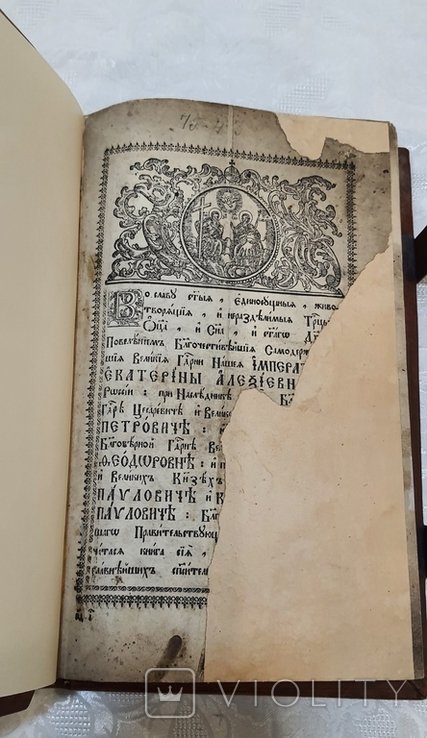 Во славу ст҃ыѧ, Единосущныѧ, живо
творѧщіѧ, и нераздѣлимыѧ Трⷪ҇цы
Оц҃а, и Сн҃а, и ст҃агѡ
Повелѣнїемъ Благочестивѣйшїѧ Самодерж
шїѧ Великїѧ Гдⷭ҇рни Нашеѧ ІМПЕРАТ
ЕКАТЕРИНЫ АЛЕѮІЕВН
Рѡссіи: при Наслѣдникѣ
Гдⷭ҇рѣ Цесаревичѣ и Велико
ПЕТРОВИЧѢ:
Благовѣрной Гдⷭ҇рнѣ Ве
ѲЕОДОРОВНѢ: и п
и Великихъ Кнѧзехъ
ПАѴЛОВИЧѢ и К
ПАѴЛОВИЧѢ: Благ
шагѡ Правительствующ
чатасѧ книга сїѧ
VIOLITY